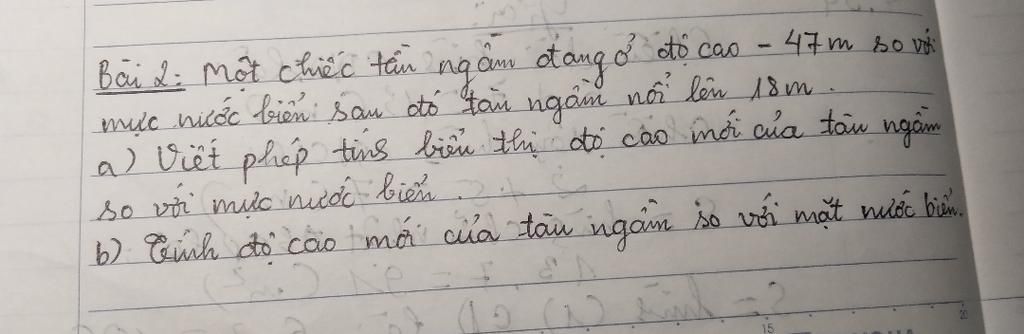 Bài 2: Một chiếc tàu ngầm đang ở độ cao - 47m so với
mực nước biển sau đó tàu ngầm nổi lên 18m.
a) Viết phép tính biểu thị độ cao mới của tàu ngầm
so với mực nước biển.
b) Tính độ cao mới của tàu ngầm so với mặt nước biển.
15
20